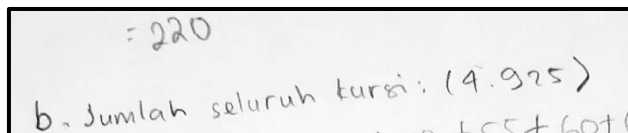 = 220
b. Jumlah seluruh kursi : (4.925)
+55+60+